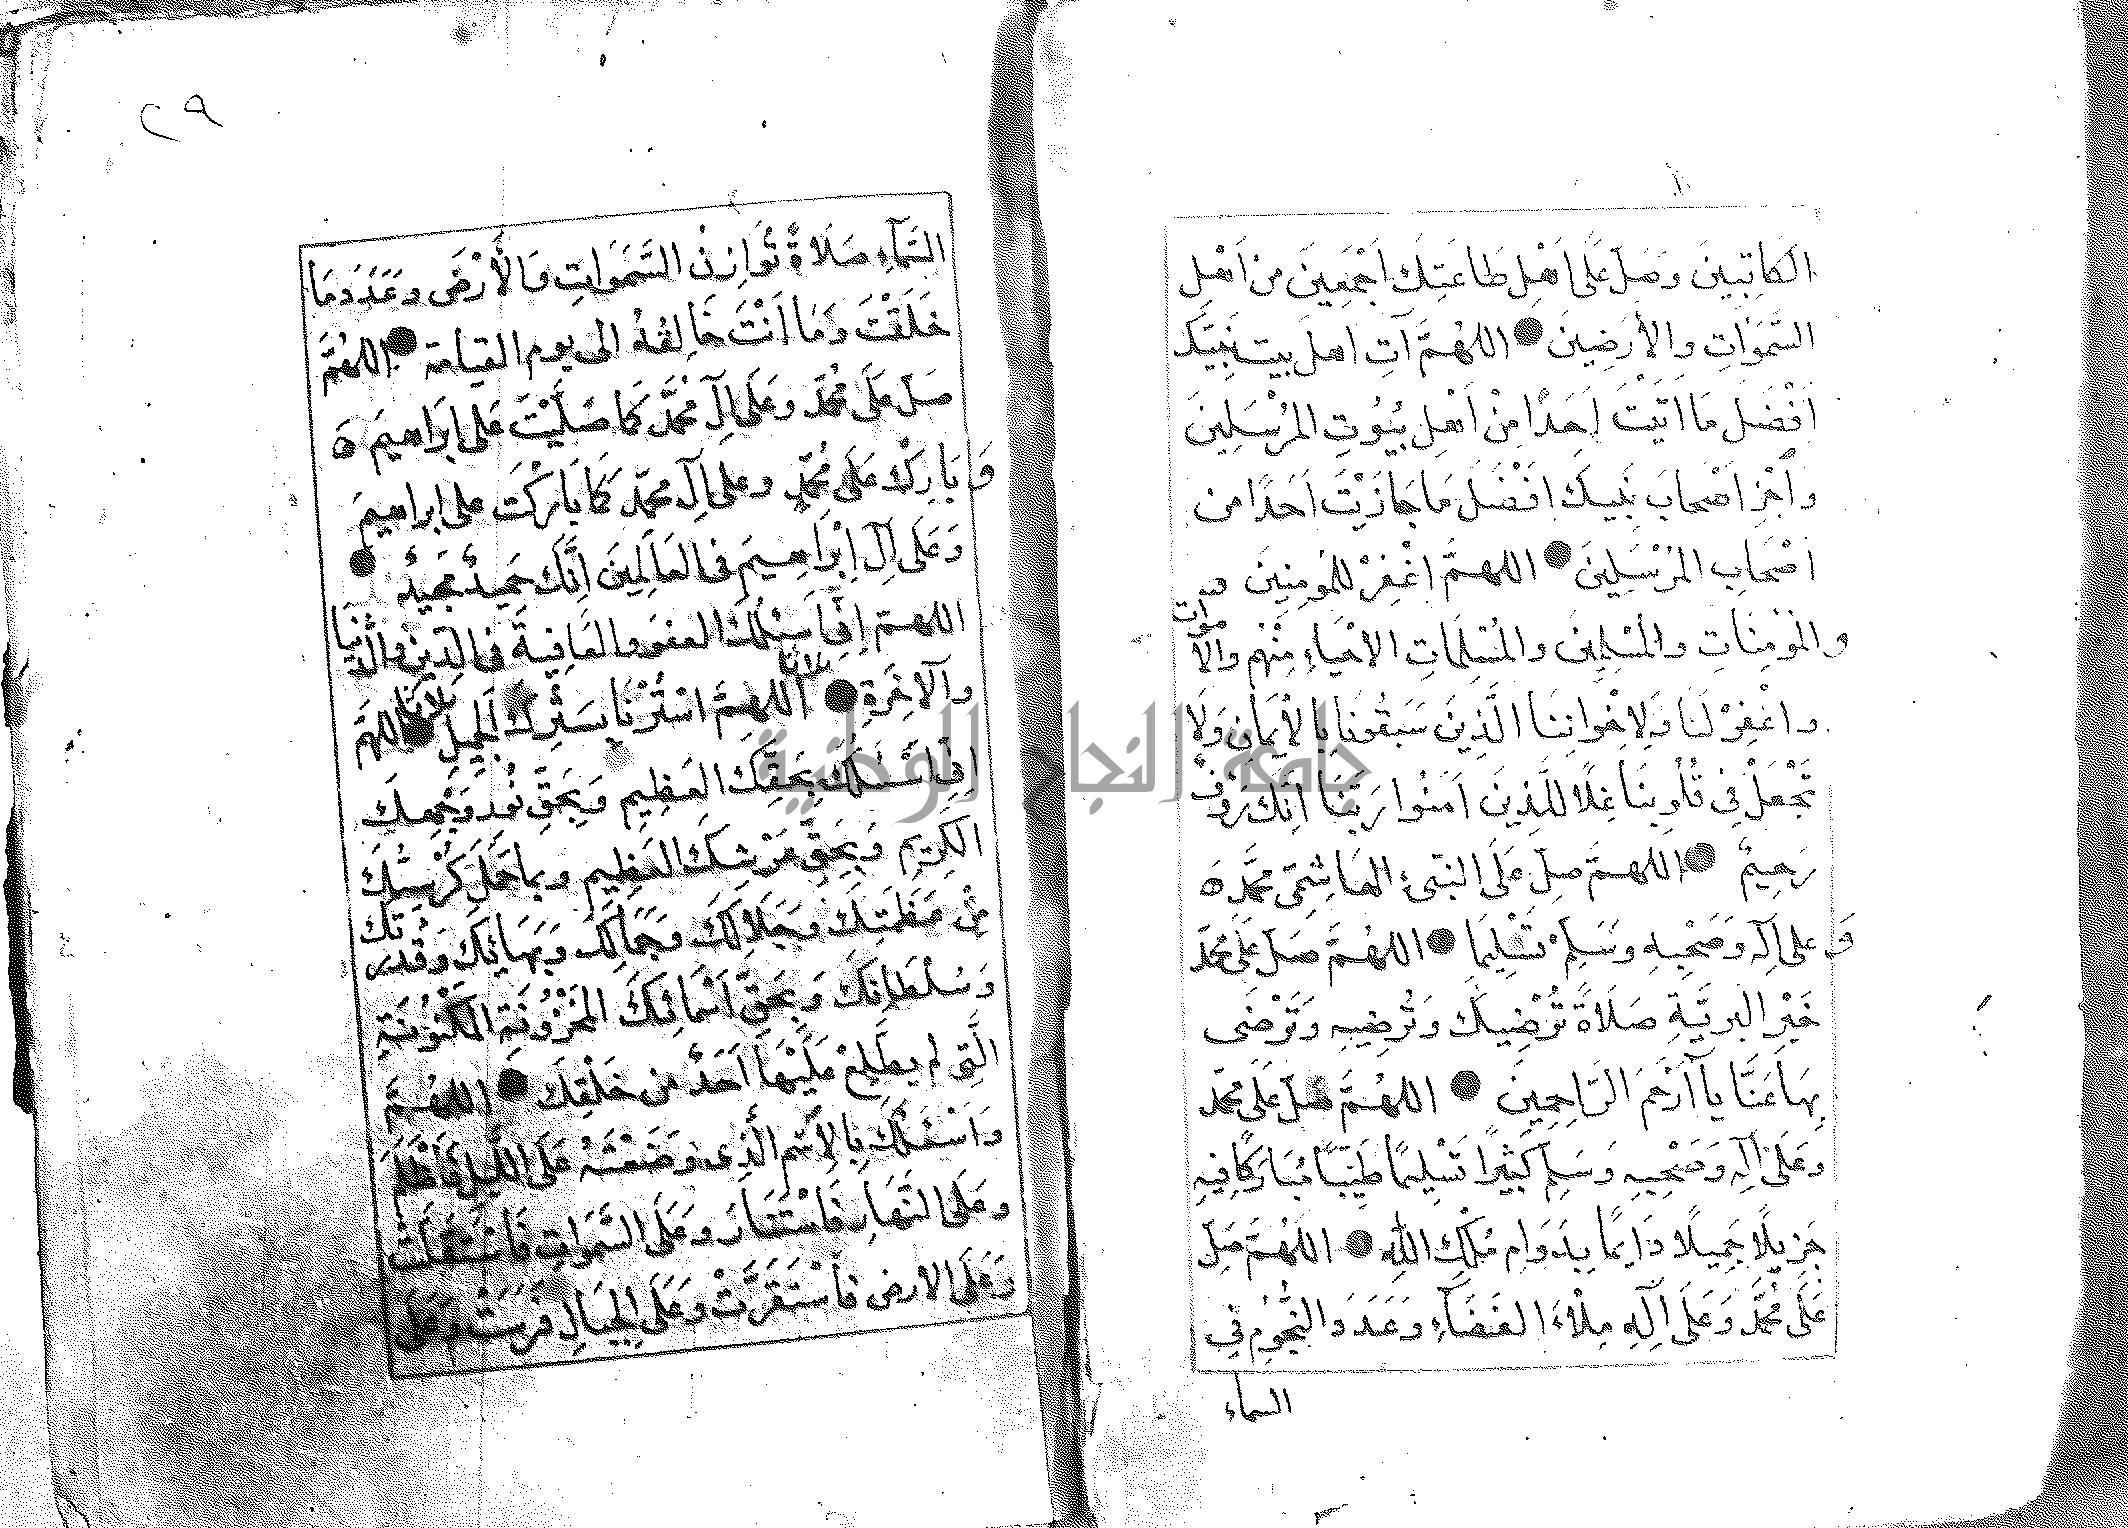 الكَاتِبينَ وَصَلِّ عَلَى اَهْلِ طَاعَتِكَ اَجْمَعِينَ مِنْ اَهْلِ
السَّمَوَاتِ والأَرَضِينَ اللهُمَّ آتِ اهلَ بيت نَبيّك
اَفْضَلَ مَا اَتَيْتَ اَحَدًا مِنْ اَهْلِ بُيُوتِ المُرْسَلِينَ
وآجْزِ اَصْحَابَ نَبِيك اَفْضَلَ مَا جَازَيْتَ اَحَدًا من
اَصْحَابِ المُرْسَلِينَ اللهمَّ اغْفِرْ لِلمُومِنِينَ
والمُوْمِنَاتِ والمُسْلِمِينَ والمُسْلِمَاتِ الأَحْيَاءِ مِنْهُم والأَمْوَات
واغْفِرْ لَنَا وَلِإخْوَانِنَا الَّذِينَ سَبَقُونَا بالأيمَانِ وَلَا
تَجْعَلْ فِي قُلُوبِنَا غِلًا لِلَّذِينَ اَمَنُوا رَبَّنَا اَنَّكَ رَوُفٌ
رَحِيمٌ اللهمَّ صَلِّ عَلَى النبيء الهَاشِمِي محمَّد ه
وَعلى آلِه وَصَحْبِهِ وَسَلِّمْ تَسْلِيمَا اللهُمَّ صَلِّ عَلَى محمَّد
خَيْرِ البَرِيَّةِ صَلَاةً تُرْضِيكَ وتُرضِيهِ وَتَرْضَى
بِهَا عَنَّا يآ اَرْحَمَ الرَّاحِمِينَ اللهُمَّ صَلِّ عَلَى محمَّد
وعَلَى آلِهِ وَصَحْبِهِ وَسَلِّم كَثِيرًا تَسْلِيمًا طَيِّبًا مُبَارَكًا فِيهِ
جَزِيلًا جَمِيلًا دَايمًا بِدَوَامِ مُلْكِ اللهِ اللهُمَّ صَلِّ
عَلَى مُحَمَّدٍ وَعَلَى آلِهِ مِلْاءَ الفَضَآءِ وَعَدَدَ النُّجُومِ فِي
السماء
٢٩
السَّمآءِ صَلَاةً تُوَازِنُ السَّمَوَاتِ وَالأَرْضَ وعَدَدَ مَا
خَلَقْتَ وَمَا اَنْتَ خَالِقُهُ الى يوم القيامة اللهُمَّ
صَلِّ عَلَى مُحَمَّد وعَلَى آلِ مُحَمَّد كَمَا صَلَّيْتَ عَلَى اِبْرَاهيمَ ه
وَبَارِكْ عَلَى مُحَمَّدٍ وعلى آلِ محمَّد كَمَا بَارَكْتَ على ابراهيمَ
وَعَلَى آلِ اِبْرَاهِيمَ في العَالَمِينَ اِنَّكَ حَمِيدٌ مَجِيدٌ
اللهمّ اِنِّي اَسْئلُكَ العفو والعَافِيةَ في الدِّينِ والدُّنيَا
والآخِرَةِ ثلاثا اللهمَّ اسْتُرْنَا بِسَتْرِكَ الجَمِيلِ ثلاثا اللهمَّ
اِنِّي اَسْئلُكَ بِحَقِّكَ العَظِيمِ وَبِحَقِّ نُورِ وَجْهِكَ
الكَرِيمِ وَبِحَقِّ عَرْشِكَ العَظِيمِ وبما حَمَلَ كُرْسِيُّكَ
مِنْ عَظَمَتِكَ وجَلَالِكَ وجَمَالِكَ وبَهَائِكَ وَقُدْرَتِكَ
وَسُلْطَانِكَ وَبِحَقِّ اَسْمَائِكَ المَخْزُونَةِ المَكْنُونَةِ
الَّتِي لم يطَّلِعْ عَلَيْهَا اَحَدٌ مِن خَلْقِكَ اللهُمَّ
وَاَسْئلُكَ بِالأِسْمِ الَّذِى وَضَعْتَهُ عَلَى اللَّيلِ فَاَظْلَمَ
وعَلَى النَّهَارِ فَاسْتَنَارَ وعَلَى السَّمَوَاتِ فَاسْتَقَلَّتْ
وَعَلَى الارضِ فَاسْتَقَرَّتْ وعَلَى الجِبَالِ فَرَسَتْ وعَلَى
جامعة النجاح الوطنية